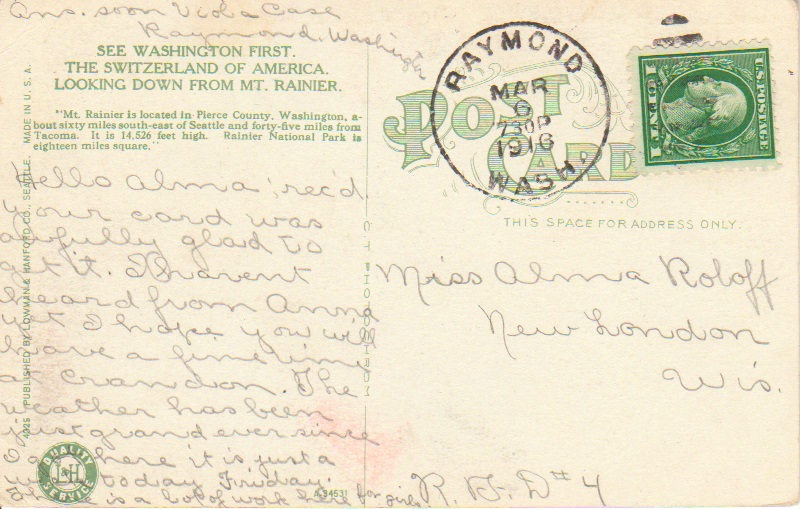 Ans. soon Viola Case
Raymond, Washington
SEE WASHINGTON FIRST.
THE SWITZERLAND OF AMERICA.
LOOKING DOWN FROM MT. RAINIER.
"Mt. Rainier is located in Pierce County, Washington, a-
bout sixty miles south-east of Seattle and forty-five miles from
Tacoma. It is 14,526 feet high. Rainier National Park is
eighteen miles square."
Hello Alma rec'd
your card was
awfully glad to
get it. I havent
heard from Anna
yet I hope you will
have a fine time
at Crandon. The
weather has been
just grand ever since
I got here it is just a
today Friday.
is a lot of work here for girls.
4025 PUBLISHED BY LOWMAN & HANFORD CO., SEATTLE. MADE IN U.S.A.
QUALITY
L&H
SERVICE
A-34531
POST
CARD
RAYMOND
MAR
230P
1916
WASH.
U.S. POSTAGE
1 CENT 1
THIS SPACE FOR ADDRESS ONLY.
Miss Alma Roloff
New London
Wis.
R. F. D #4